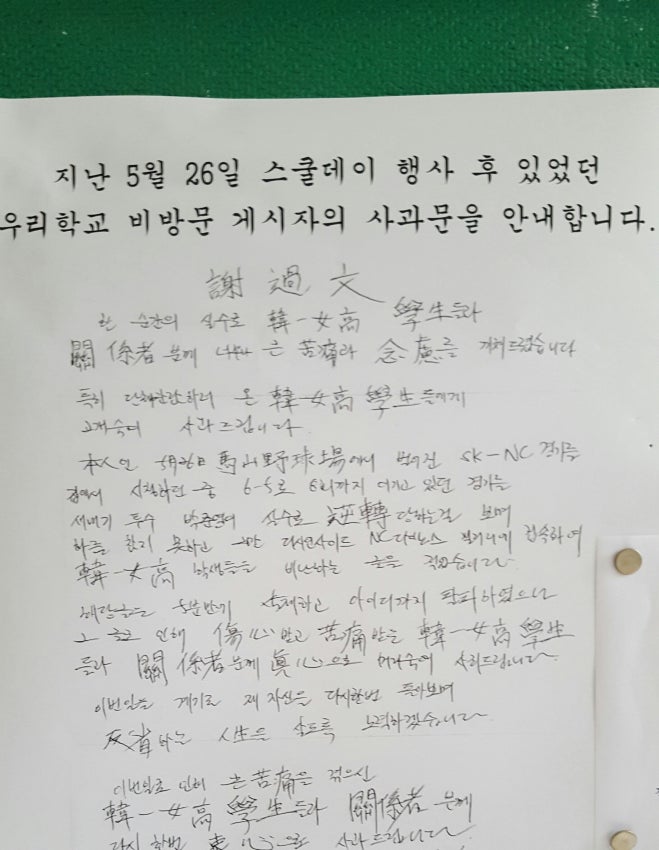 지난 5월 26일 스쿨데이 행사 후 있었던
우리학교 비방문 게시자의 사과문을 안내합니다.
謝過文
한 순간의 실수로 韓一女高 學生들과
關係者 분께 너무나 큰 苦痛과 念慮를 끼쳐드렸습니다
특히 단체관람하러 온 韓一女高 學生들에게
고개숙여 사과드립니다.
本人은 5月26日 馬山野球場에서 벌어진 SK-NC 경기를
집에서 시청하던 중 6-5로 8회까지 이기고 있던 경기를
새내기 투수 박준영이 실수로 逆轉 당하는걸 보며
화를 참지 못하고 그만 다시인사이드 NC다이노스 갤러리에 접속하여
韓一女高 학생들을 비난하는 글을 적었습니다.
해당글은 5분만에 삭제하고 아이디까지 탈퇴하였으나
그 글로 인해 傷心받고 苦痛받은 韓一女高 學生
들과 關係者분께 眞心으로 머리숙여 사죄드립니다.
이번일을 계기로 제 자신을 다시한번 돌아보며
反省하는 人生을 살도록 노력하겠습니다
이번일로 인해 큰 苦痛을 겪으신
韓一女高 學生들과 關係者 분께
다시 한번 心으로 사과드립니다.